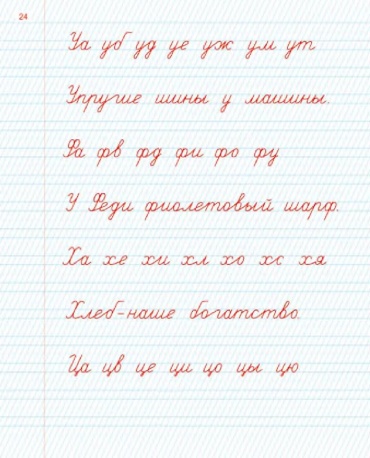 24
Уа уб уд уе уж ум ут
Упругие шины у машины.
Фа фв фд фи фо фу
У Феди фиолетовый шарф.
Ха хе хи хл хо хс хя
Хлеб-наше богатство.
Ца цв це ци цо цы цю